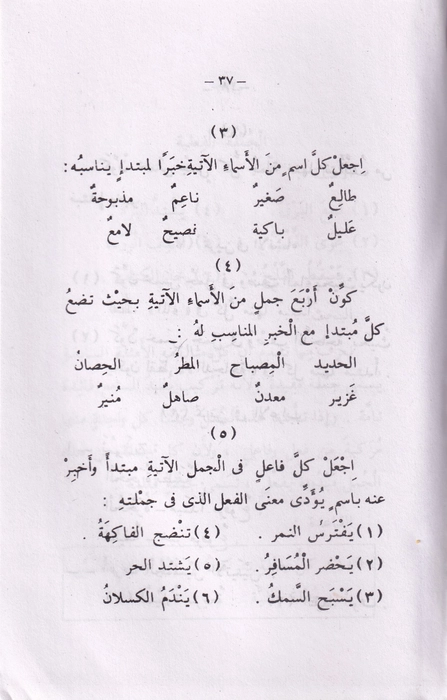 – ٣٧ –
(٣)
اِجعلْ كلَّ اسم ٍ منَ الأسماءِ الآتيةِ خبَرًا لمبتدإ يناسبُه :
طالِعٌ صَغيرٌ ناعِمٌ مذبوحةٌ
عَليلٌ باكية نصيحٌ لامعٌ
(٤)
كوِّنْ أرْبَعَ جملٍ منَ الأسماءِ الآتيةِ بحيْث تضعُ
كلَّ مُبتدإ مع الْخبرِ المناسِبِ لهُ :ـ
الحديد المِصباح المطرُ الحِصانُ
غَزير معدنٌ صاهلٌ مُنيرٌ
(٥)
اِجْعَلْ كلَّ فاعلٍ فى الْجمل الآتيةِ مبتدأ وأخبِرْ
عنه باسمٍ يُؤَدِّى معنَى الفعل الذى فى جمْلتهِ :
(١) يَفْتَرسُ النمر . (٤) تنْضج الفاكِهَةُ .
(٢) يَحْضر الْمُسَافِرُ . (٥) يَشتد الحر
(٣) يَسْبَح السَّمكُ . (٦) يَنْدَمُ الكسلانُ